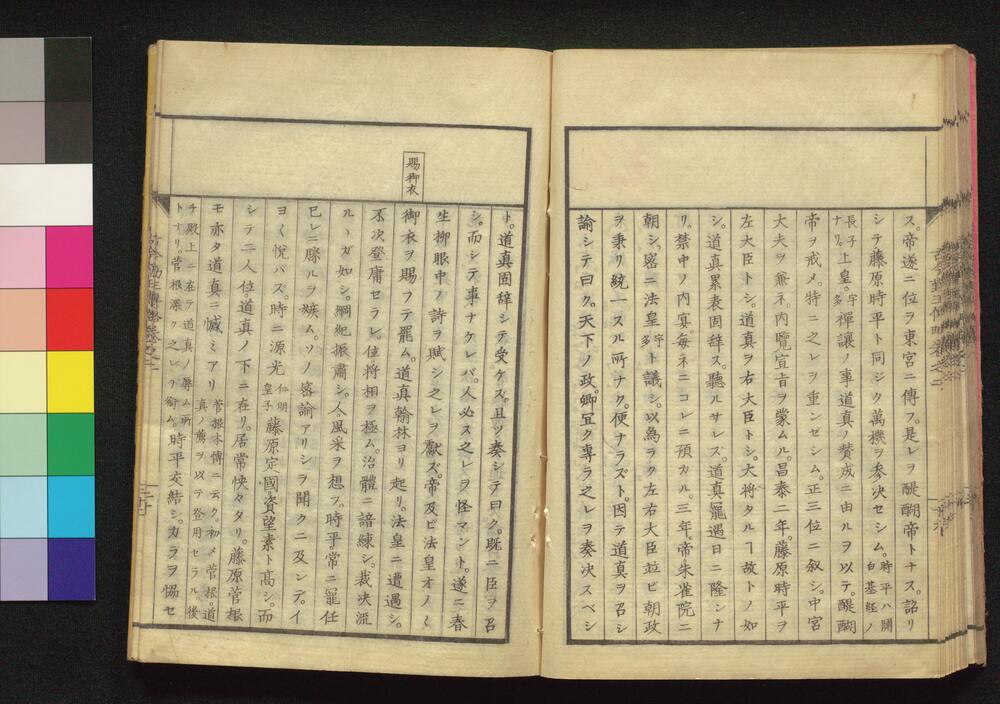 ス。帝遂ニ位ヲ東宮ニ傳フ。是レヲ醍醐帝トナス。詔リ
シテ藤原時平ト同ジク萬機ヲ参決セシム。時平ハ關白基經ノ
長子ナリ。上皇。宇多禪讓ノ事道真ノ賛成ニ由ルヲ以テ。醍醐
帝ヲ戒メ。特ニ之レヲ重ンゼシム。正三位ニ叙シ。中宮
大夫ヲ兼ネ。内覽宣旨ヲ蒙ムル。昌泰二年。藤原時平ヲ
左大臣トシ。道真ヲ右大臣トシ。大将タルヿ故トノ如
シ。道真累表固辞ス。聽ルサレス。道真寵遇日ニ隆シナ
リ。禁中ノ内宴。毎ネニコレニ預カル。三年。帝朱雀院ニ
朝シ。密ニ法皇宇多ト議シ。以為ラク左右大臣並ビ朝政
ヲ秉リ統一スル所ナク。便ナラズト。因テ道真ヲ召シ
諭シテ曰ク。天下ノ政。卿宜ク専ラ之レヲ奏决スベシ
ト。道真固辞シテ受ケス。且ツ奏シテ曰ク。既ニ臣ヲ召
シ。而シテ事ナケレバ。人必ス之レヲ怪マント。遂ニ春
生柳眼中ノ詩ヲ賦シ之レヲ獻ズ。帝及ビ法皇オノ〱
賜御衣
御衣ヲ賜フテ罷ム。道真翰林ヨリ起リ。法皇ニ遭遇シ。
不次登庸セラレ。位将相ヲ極ム。治體ニ諳練シ。裁决流
ルヽガ如シ。綱紀振肅シ。人風采ヲ想フ。時平常ニ寵任
已レニ勝ルヲ嫉ム。ソノ密諭アリシヲ聞クニ及ンデ。イ
ヨく悦バス。時ニ源光仁明皇子藤原定國資望素ト高シ。而
シテ二人位道真ノ下ニ在リ。居常怏々タリ。藤原菅根
モ亦タ道真ニ憾ミアリ菅根本傳ニ云ク。初メ菅根。道真ノ薦ヲ以テ登用セラル。後
チ殿上ニ在テ道真ノ辱ム所トナリ。菅根深ク之レヲ銜ム。時平交結シ。力ラヲ恊セ